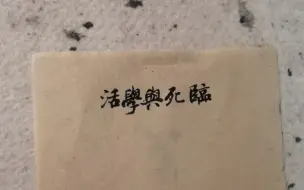 活學與死臨